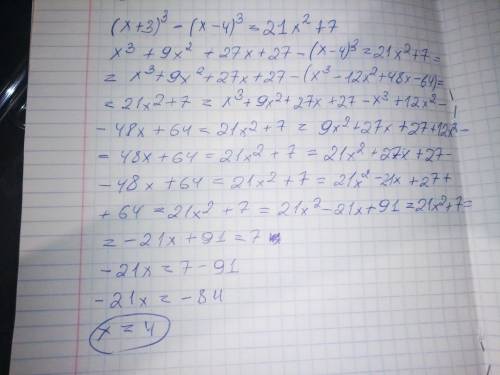 (x+3)³ - (x-4)³ = 21x² + 7
x³ + 9x² + 27x + 27 - (x-4)³ = 21x² + 7 =
= x³ + 9x² + 27x + 27 - (x³ - 12x² + 48x - 64) =
= 21x² + 7 = x³ + 9x² + 27x + 27 - x³ + 12x² -
- 48x + 64 = 21x² + 7 = 9x² + 27x + 27 + 12x² -
= 48x + 64 = 21x² + 7 = 21x² + 27x + 27 -
- 48x + 64 = 21x² + 7 = 21x² - 21x + 27 +
+ 64 = 21x² + 7 = 21x² - 21x + 91 = 21x² + 7 =
= - 21x + 91 = 7
- 21x = 7 - 91
- 21x = - 84
x = 4